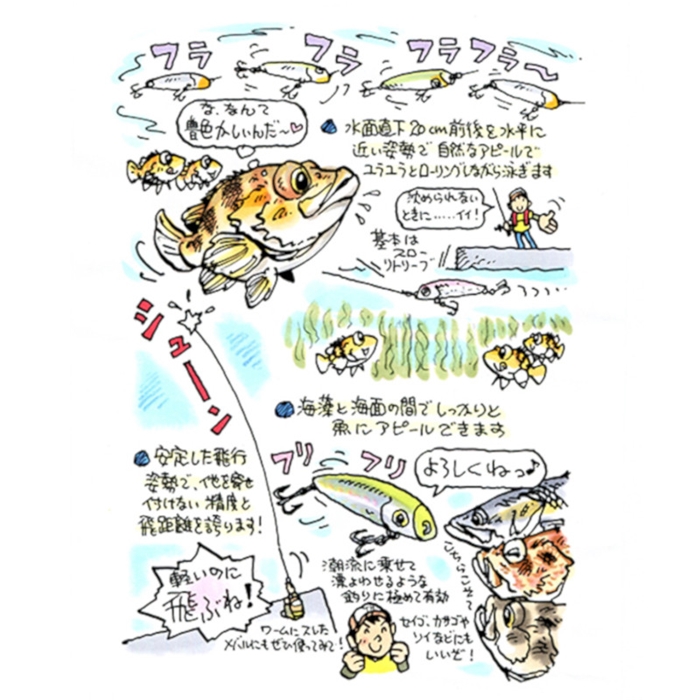 フラ フラ フラフラ〜
な、なんて
艶かしいんだ〜♡
水面直下20cm前後を水平に
近い姿勢で自然なアピールで
ユラユラとローリングしながら泳ぎます
沈められない
ときに……イイ！
基本は
スロー
リトリーブ
シューーン
海藻と海面の間でしっかりと
魚にアピールできます
安定した飛行
姿勢で、他を寄せ
付けない精度と
飛距離を誇ります！
フリ フリ
よろしくねっ♪
こちらこそっ
軽いのに
飛ぶね！
潮流に乗せて
漂よわせるような
釣りに極めて有効
ワームにスレた
メバルにもぜひ使ってみて！
セイゴ、カサゴや
ソイなどにも
いいぞ！